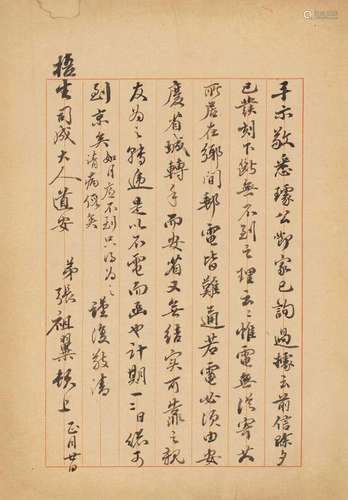 手示敬悉璩公鄂家已詢過據云前信除夕
已發刻下斷無不到之理云云惟電無從寄其
所居在鄉間郵電皆難通若電必須由安
慶省城轉手而安省又無結實可靠之親
友為之轉遞是以不電而函也計期一二日總可
到京矣如月底不到只得為之請病假矣謹復敬請
梧生司成大人道安 弟張祖翼頓上 正月廿日